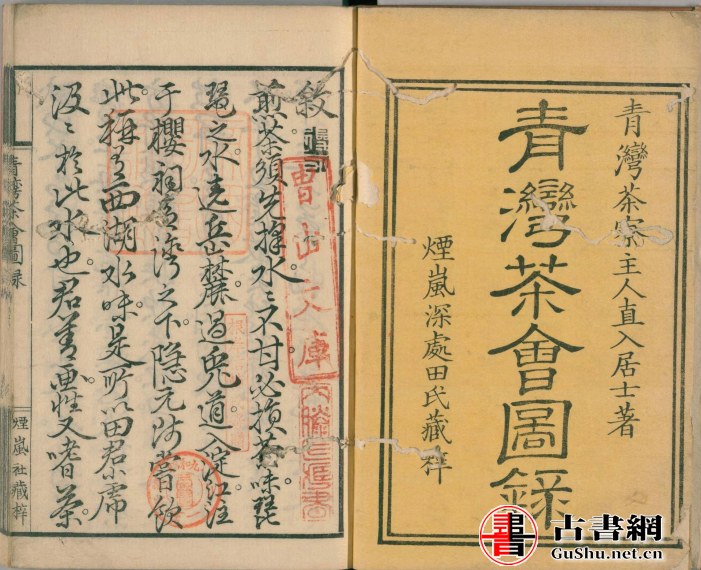 青灣茶寮主人直入居士著
青灣茶會圖錄
煙嵐深處田氏藏梓
敘
煎茶須先擇水〻不甘必損茶味琵
琶之水遶岳麓過兎道入淀江注
于櫻祠青湾之下隠元師嘗飲
此稱有西湖水味是所以田君
汲〻於此水也君善画性又嗜茶
青灣茶會圖錄
煙嵐社藏梓
文庫
書
古書網
GuShu.net.cn